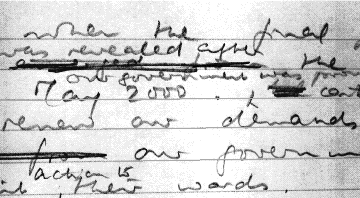 when the final
was revealed after the
our government was
May 2000. I
renew our demands
our govern
action is
their words.